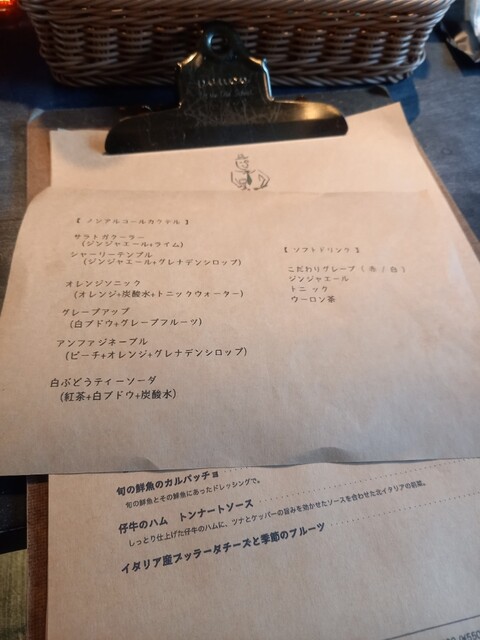 【 ノンアルコールカクテル 】
サラトガクーラー
(ジンジャエール+ライム)
シャーリーテンプル
(ジンジャエール+グレナデンシロップ)
オレンジソニック
(オレンジ+炭酸水+トニックウォーター)
グレープアップ
(白ブドウ+グレープフルーツ)
アンファジネーブル
(ピーチ+オレンジ+グレナデンシロップ)
白ぶどうティーソーダ
(紅茶+白ブドウ+炭酸水)
【 ソフトドリンク 】
こだわりグレープ ( 赤 / 白 )
ジンジャエール
トニック
ウーロン茶
旬の鮮魚のカルパッチョ
旬の鮮魚とその鮮魚にあったドレッシングで。
仔牛のハム トンナートソース
しっとり仕上げた仔牛のハムに、ツナとケッパーの旨みを効かせたソースを合わせた北イタリアの前菜。
イタリア産ブッラータチーズと季節のフルーツ